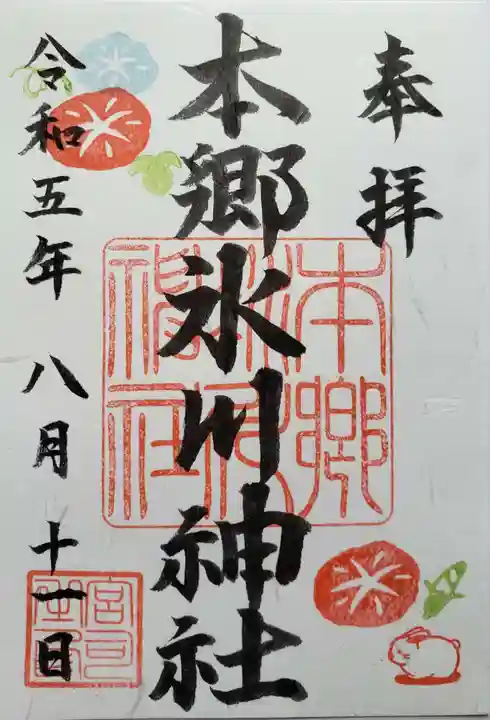 奉拝
本郷氷川神社
令和五年 八月 十一日
本郷氷川神社
宮司之印